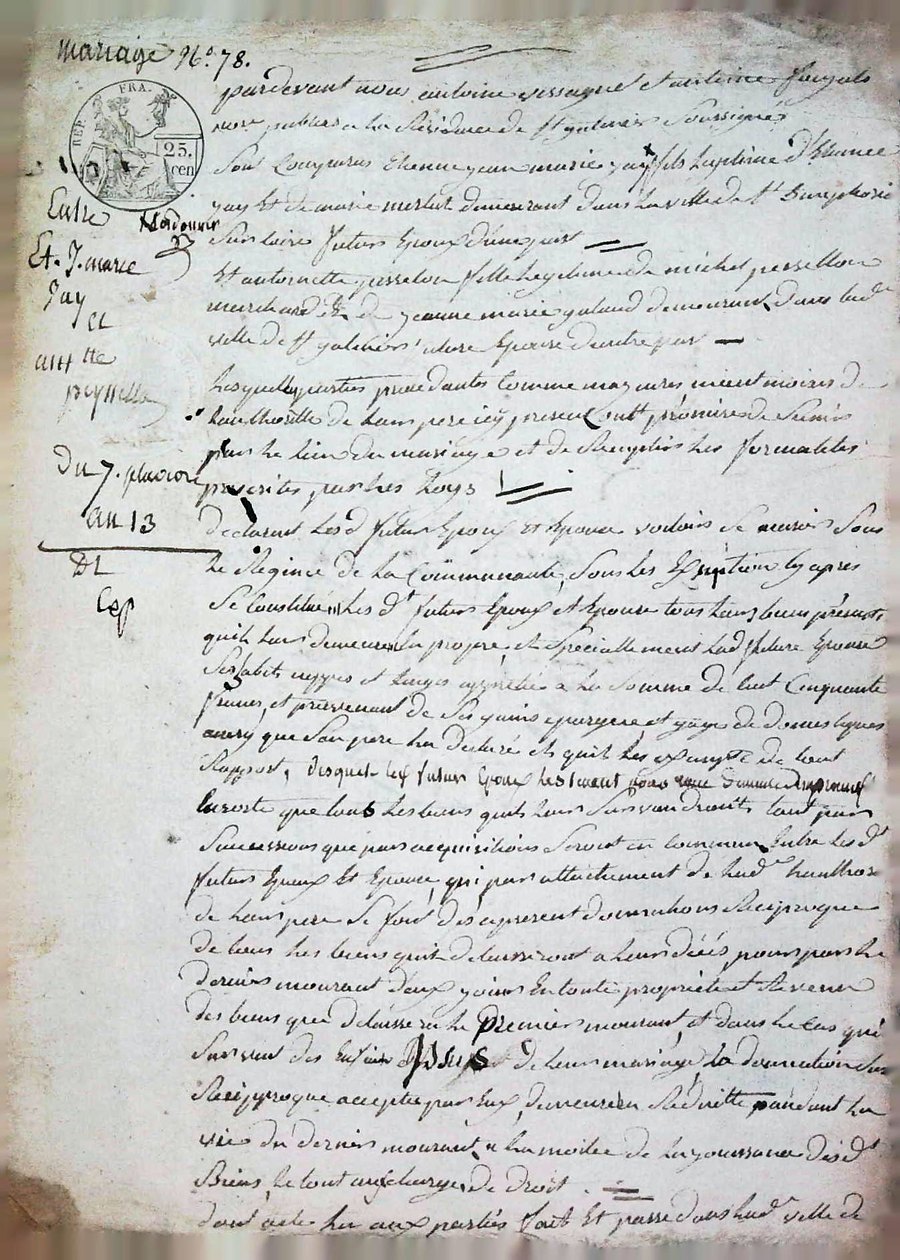 mariage N.º 78.
REP. FRA.
25. cen
Entre
Et. J. marie
Jay
et
ant.tte
peysselon
Du 7. pluviose
an 13
Cordonnier
pardevant nous antoine et antoine
no.res publics a la Résidence de St galmier Soussignés
Sont Comparus Etienne jean marie jay fils legitime d'Etienne
jay Et de marie merlat demeurant dans la ville de St Simphorien
Sur loire futur Epoux d'une part
Et antoinette peysselon fille legitime de michel peysselon
marchand & de jeanne marie galand demeurant dans lad.e
ville de St galmier future Epouse d'autre part
Lesquelles parties procedantes Comme majeures
de Leurs pere icy present ont promis de S'unir
par le lien du mariage et de Remplir les formalités
prescrites par les Loys
Declarant Lesd. futur Epoux et Epouse vouloir Se marier Sous
Le Régime de La Communauté, Sous les Exeption cy après
Se Constituent Lesd.t futur Epoux et Epouse tous Leurs biens présents,
quil Leur demeurera propre, et Specialement Lad. future Epouse
Ses habits nippes et linges appretiés a La Somme de Cent Cinquante
francs, et provenant de Ses gains epargne et gages de domestiques
que Son pere La Declaré et quil Les exempte de tout
Rapport, desquels led. futur Epoux
Lareste que tous Les biens quils Leur Surviendronts tant par
Successions que par acquisitions Seront en commun Entre Lesd.t
futurs Epoux Et Epouse, qui par attachement de Lad.e
de Leurs pere Se font des apresent donnations Reciproque
de tous Les biens quils delaisseront a Leurs décés, pour par Le
dernier mourant d'eux jouir En toute propriete et Revenu
des biens que delaissera Le Premier mourant, et dans Le Cas qui
Survient des Enfans Issus de Leur mariage, La donnation Sus
Reciproque acceptée par Eux, demeurera Reduitte pandant La
vie du dernier mourant, a La moitie de La jouissance desd.t
Biens, Le tout aux charges de droit.
dont acte Lu aux parties fait Et passé dans Lad.e ville de